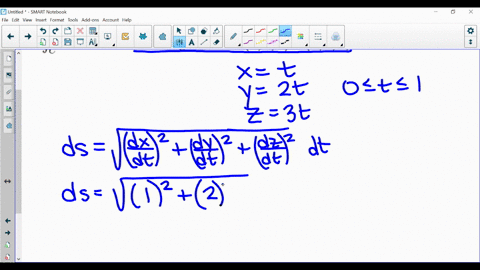 Untitled * - SMART Notebook
File Edit View Insert Format Tools Add-ons Account Help
x = t
y = 2t
z = 3t
0 ≤ t ≤ 1
ds = √((dx/dt)² + (dy/dt)² + (dz/dt)²) dt
ds = √((1)² + (2)